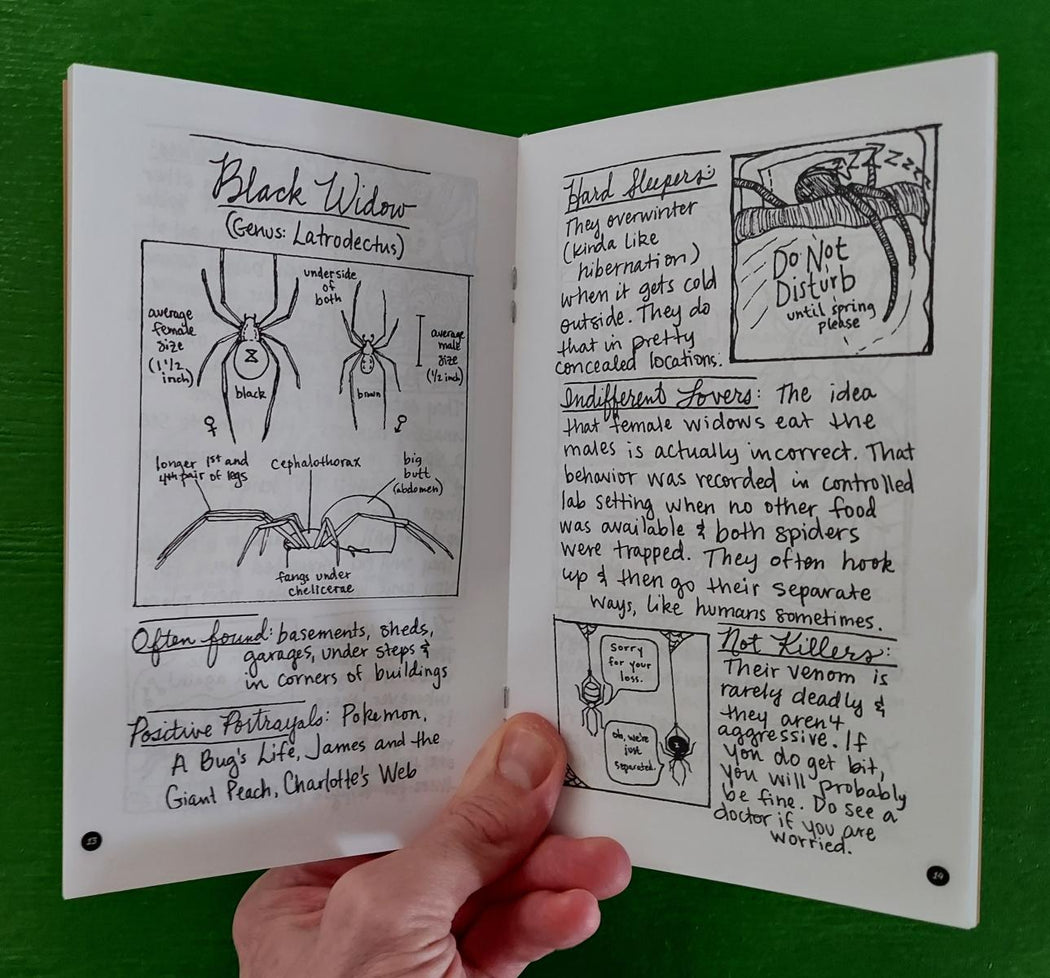 Black Widow
(Genus: Latrodectus)
underside
of
both
average
female
size
(1 1/2
inch)
average
male
size
(1/2 inch)
black
brown
♀
♂
longer 1st and
4th pair of legs
cephalothorax
big
butt
(abdomen)
fangs under
chelicerae
Often found: basements, sheds,
garages, under steps &
in corners of buildings
Positive Portrayals: Pokemon,
A Bug's Life, James and the
Giant Peach, Charlotte's Web
13
Hard Sleepers:
They overwinter
(kinda like
hibernation)
when it gets cold
outside. They do
that in pretty
concealed locations.
ZZZzzz
Do Not
Disturb
until spring
please
Indifferent Lovers: The idea
that female widows eat the
males is actually incorrect. That
behavior was recorded in controlled
lab setting when no other food
was available & both spiders
were trapped. They often hook
up & then go their separate
ways, like humans sometimes.
Sorry
for your
loss.
oh, we're
just
separated.
Not Killers:
Their venom is
rarely deadly &
they aren't
aggressive. If
you do get bit,
you will probably
be fine. Do see a
doctor if you are
worried.
14